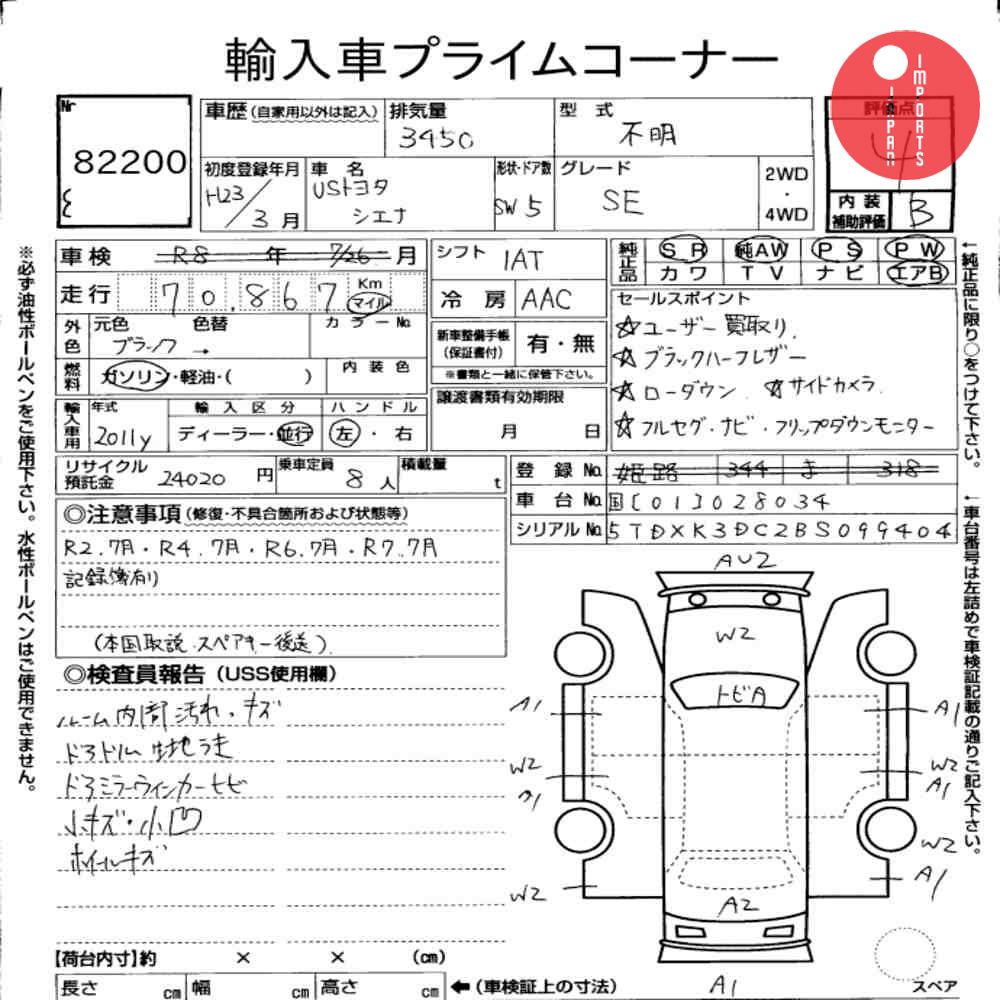 輸入車プライムコーナー
JAPAN IMPORTS
Nr
82200
車歴(自家用以外は記入)
排気量
3450
型式
不明
評価点
4
内装補助評価
B
初度登録年月
H23/3月
車名
USトヨタ
シエナ
形状・ドア数
SW 5
グレード
SE
2WD
・
4WD
車検 R8年 7/26月
シフト
IAT
純正品
SR 純AW PS PW
カワ TV ナビ エアB
走行 70.867 Km マイル
冷房 AAC
セールスポイント
☆ユーザー買取り.
☆ブラックハーフレザー
☆ローダウン ☆サイドカメラ.
☆フルセグ・ナビ・フリップダウンモニター
外色
元色 色替
ブラック →
カラーNo.
新車整備手帳(保証書付)
有・無
※書類と一緒に保管下さい。
燃料
ガソリン・軽油・( )
内装色
譲渡書類有効期限
月 日
輸入車用
年式
2011y
輸入区分
ディーラー・並行
ハンドル
左・右
リサイクル預託金 24020円
乗車定員 8人
積載量 t
登録No. 姫路 344 ま 318
車台No. 国[01]028034
シリアルNo. 5TDXK3DC2BS099404
◎注意事項(修復・不具合箇所および状態等)
R2.7月・R4.7月・R6.7月・R7.7月
記録簿有り
(本国取説.スペアキー後送)
◎検査員報告(USS使用欄)
ルーム内部汚れ・キズ
ドアトリム生地うき
ドアミラーウィンカーヒビ
小キズ・小凹
ホイールキズ
AU2
W2
トビA
A1
A1
W2
W2
A1
W2
A1
W2
A2
A1
スペア
【荷台内寸】約 × × (cm)
長さ cm 幅 cm 高さ cm ←(車検証上の寸法)
※必ず油性ボールペンをご使用下さい。水性ボールペンはご使用できません。
←純正品に限り○をつけて下さい。
←車台番号は左詰めで車検証記載の通りご記入下さい。